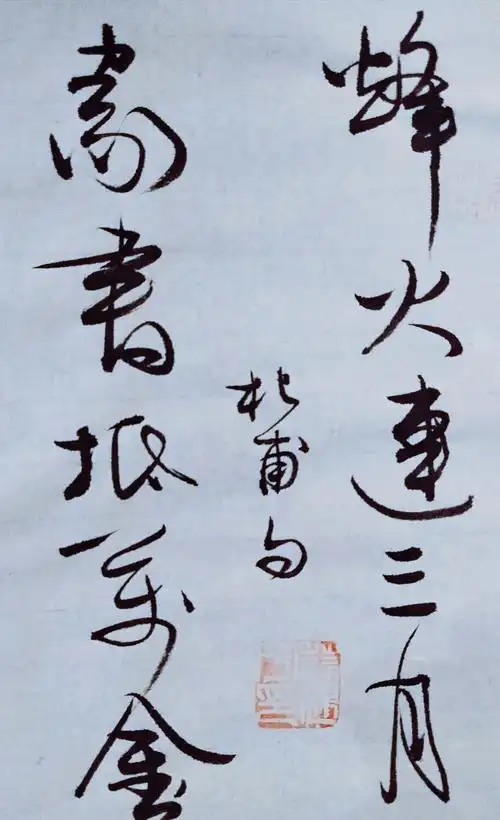 烽火連三月
家書抵萬金
杜甫句